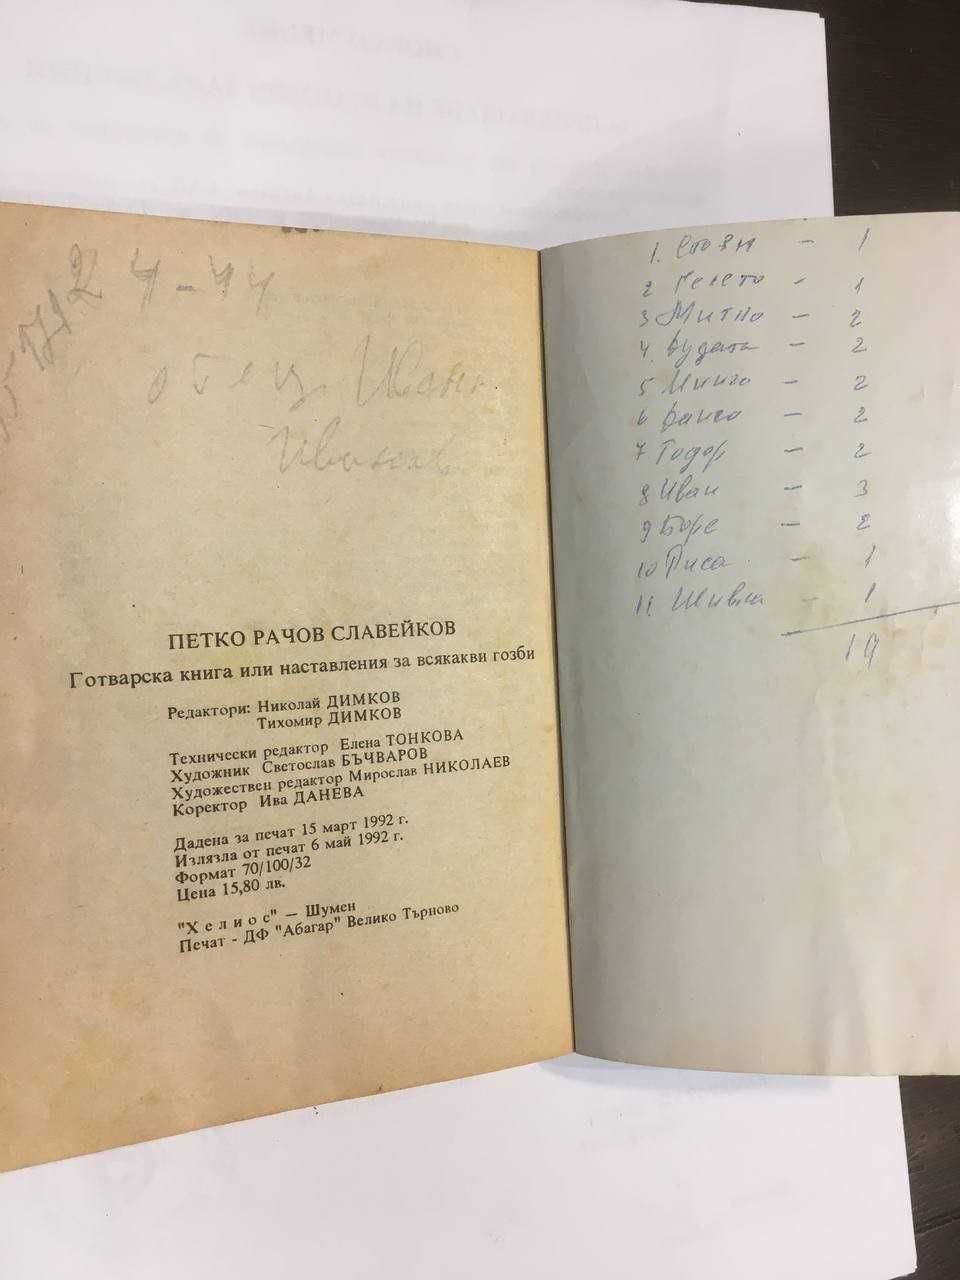 24-44
отец
Иванов
ПЕТКО РАЧОВ СЛАВЕЙКОВ
Готварска книга или наставления за всякакви гозби
Редактори: Николай ДИМКОВ
Тихомир ДИМКОВ
Технически редактор Елена ТОНКОВА
Художник Светослав БЪЧВАРОВ
Художествен редактор Мирослав НИКОЛАЕВ
Коректор Ива ДАНЕВА
Дадена за печат 15 март 1992 г.
Излязла от печат 6 май 1992 г.
Формат 70/100/32
Цена 15,80 лв.
"Хелиос" — Шумен
Печат - ДФ "Абагар" Велико Търново
1. Стоян - 1
2 - 1
3 Митко - 2
4. - 2
5 Минчо - 2
6 - 2
7 Тодор - 2
8 Иван - 3
9 Боре - 2
10 - 1
11 - 1
19